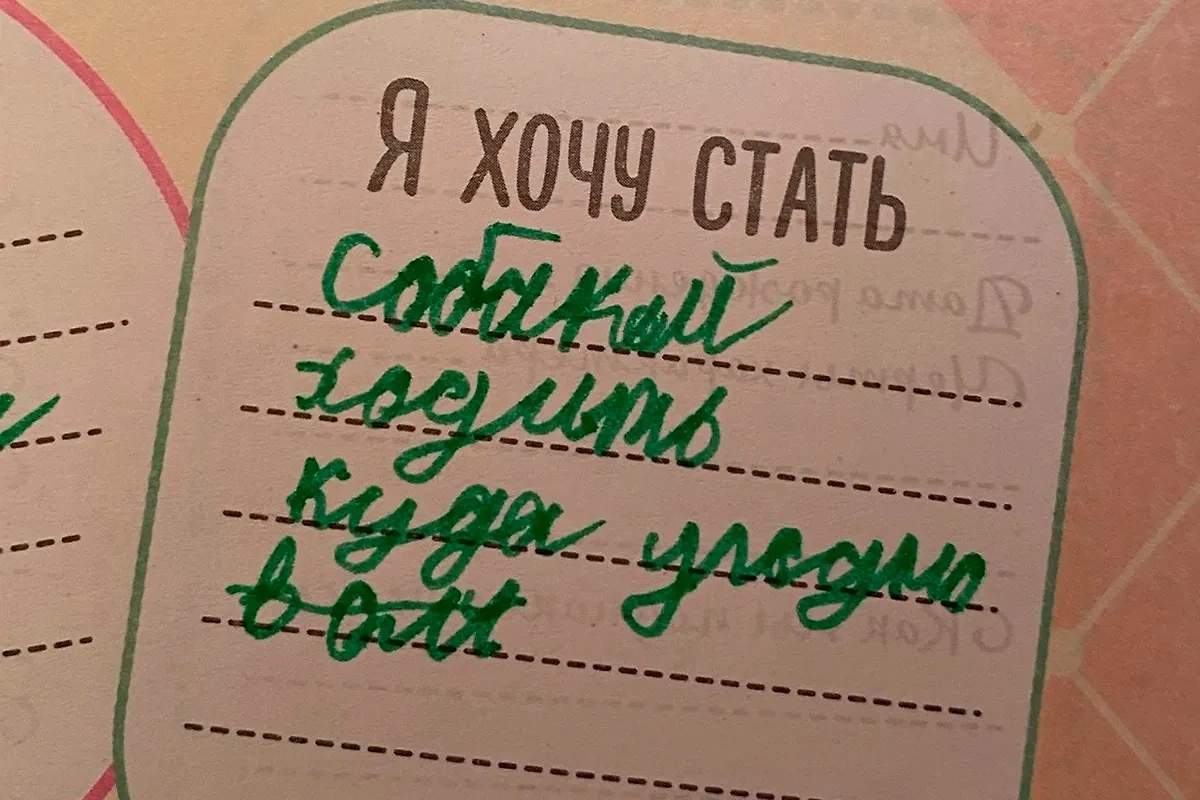 Я ХОЧУ СТАТЬ
собакой
ходить
куда угодно